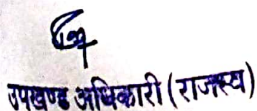 उपखण्ड अधिकारी (राजस्व)